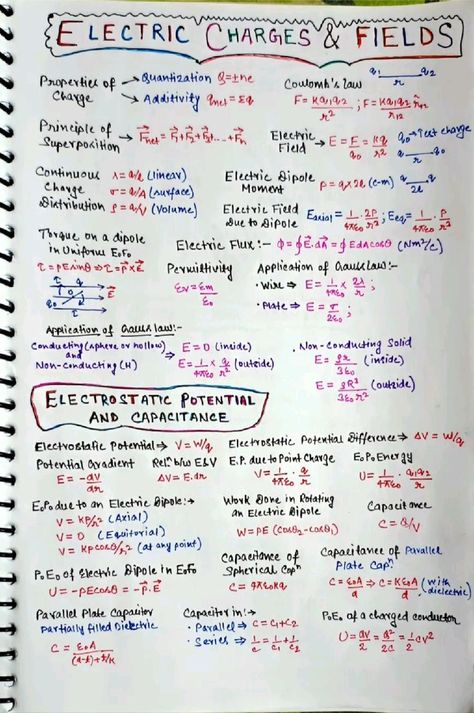 ELECTRIC CHARGES & FIELDS
Properties of Charge → Quantization Q=±ne
→ Additivity qnet = Σq
Coulomb's law
q1 q2
r
F = Kq1q2/r² ; F = Kq1q2/r12 r̂12
Principle of Superposition → F⃗net = F⃗1+F⃗2+F⃗3.....+F⃗n
Electric Field → E = F/q0 = Kq/r²
q0 → Test charge
q0 q
r
Continuous Charge Distribution
λ = q/l (linear)
σ = q/A (surface)
ρ = q/V (Volume)
Electric Dipole Moment
P = q×2l (c-m)
q q
2l
Electric Field Due to Dipole
Eaxial = 1/4πε0 · 2P/r³ ; Eeq = 1/4πε0 · P/r³
Torque on a dipole in Uniform E.F.
τ = pE sinθ ⇒ τ⃗ = P⃗×E⃗
E⃗
Electric Flux:- Φ = ∮E⃗.dA⃗ = ∮EdAcosθ (Nm²/c)
Permittivity
εr = εm/ε0
Application of Gauss law:-
• Wire ⇒ E = 1/4πε0 × 2λ/r ;
• Plate ⇒ E = σ/2ε0 ;
Application of Gauss law:-
Conducting (sphere or hollow) and Non-Conducting (H)
⇒ E = 0 (inside)
E = 1/4πε0 × q/r² (outside)
• Non-Conducting Solid
E = ρr/3ε0 (inside)
E = ρR³/3ε0r² (outside)
ELECTROSTATIC POTENTIAL
AND CAPACITANCE
Electrostatic Potential ⇒ V = W/q
Electrostatic Potential Difference ⇒ ΔV = W/q
Potential Gradient
E = -dV/dr
Relⁿ b/w E&V
ΔV = E.dr
E.P. due to Point Charge
V = 1/4πε0 · q/r
E.P. Energy
U = 1/4πε0 · q1q2/r
E.P. due to an Electric Dipole:→
V = KP/r² (Axial)
V = 0 (Equitorial)
V = KPcosθ/r² (at any point)
Work Done in Rotating an Electric Dipole
W = PE (cosθ2 - cosθ1)
Capacitance
C = Q/V
P.E. of Electric Dipole in E.F.
U = -pEcosθ = -P⃗.E⃗
Capacitance of Spherical Capⁿ
C = 4πε0Ka
Capacitance of Parallel Plate Capⁿ
C = ε0A/d ⇒ C = Kε0A/d (with dielectric)
Parallel Plate Capacitor
Partially filled Dielectric
C = ε0A/(d-t)+t/K
Capacitor in:→
• Parallel ⇒ C = C1+C2
• Series ⇒ 1/C = 1/C1 + 1/C2
P.E. of a charged conductor
U = QV/2 = Q²/2C = 1/2 CV²